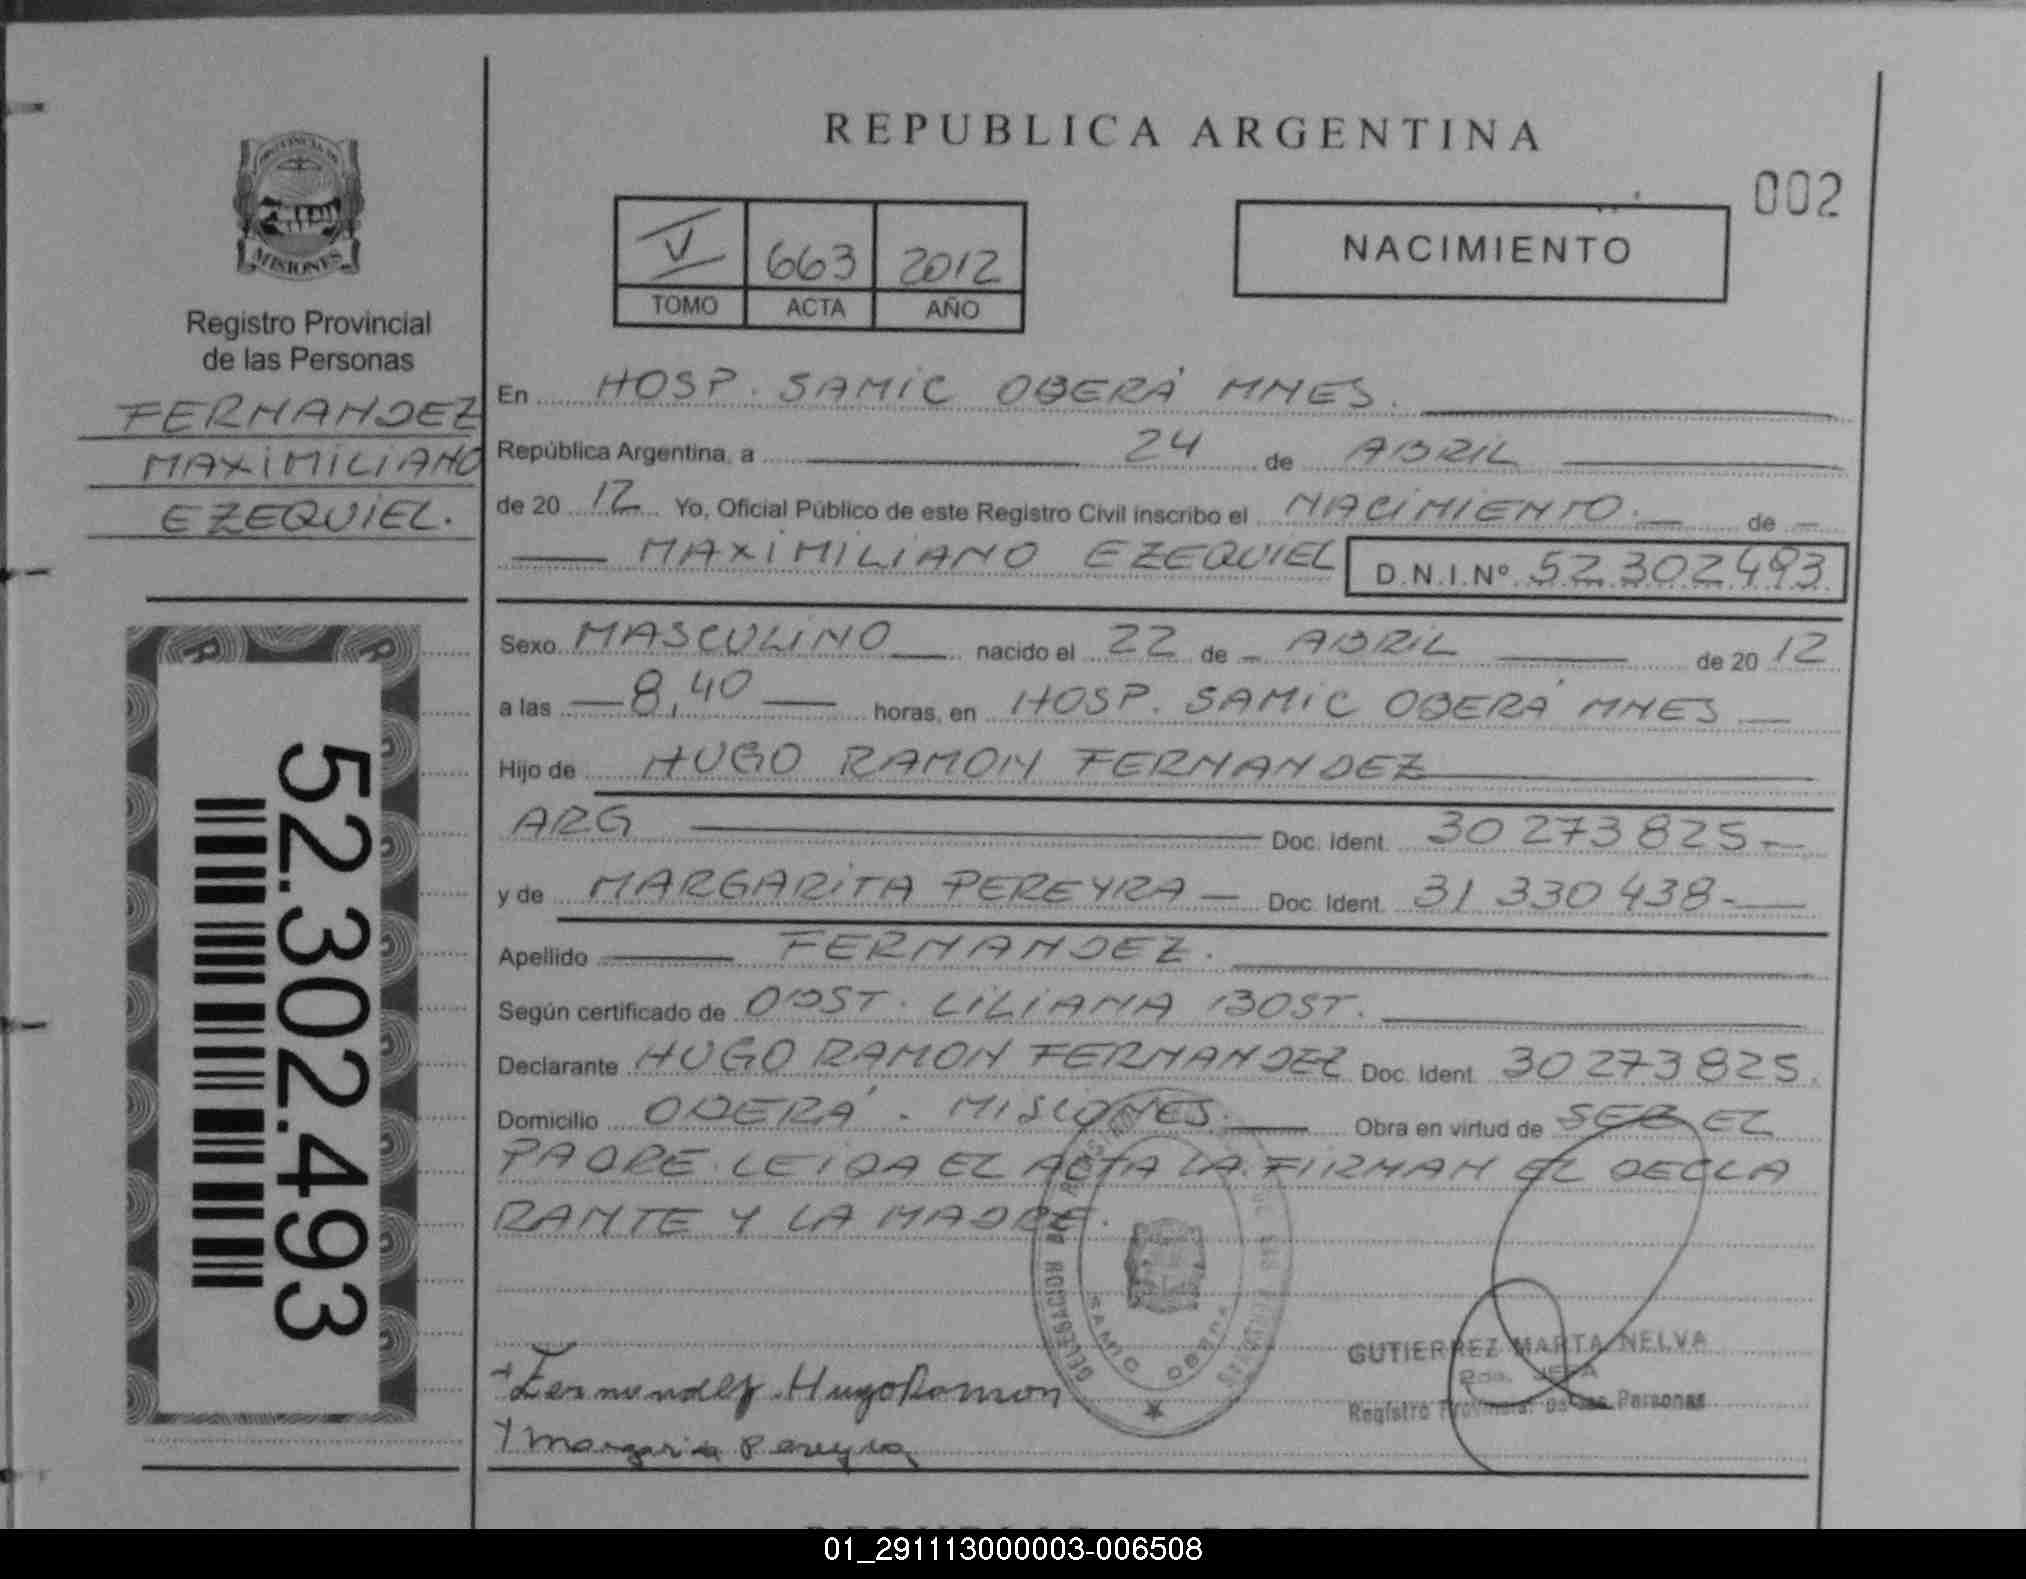 REPUBLICA ARGENTINA
002
V 663 2012
TOMO ACTA AÑO
NACIMIENTO
PROVINCIA DE
MISIONES
Registro Provincial
de las Personas
FERNANDEZ
MAXIMILIANO
EZEQUIEL.
52.302.493
En HOSP. SAMIC OBERÁ MNES.
República Argentina, a 24 de ABRIL
de 20 12 Yo, Oficial Público de este Registro Civil inscribo el NACIMIENTO. de
MAXIMILIANO EZEQUIEL D.N.I.Nº 52.302.493
Sexo MASCULINO nacido el 22 de ABRIL de 20 12
a las 8,40 horas, en HOSP. SAMIC OBERÁ MNES
Hijo de HUGO RAMON FERNANDEZ
ARG Doc. Ident. 30 273 825
y de MARGARITA PEREYRA Doc. Ident. 31 330 438
Apellido FERNANDEZ.
Según certificado de OBST. LILIANA BOST.
Declarante HUGO RAMON FERNANDEZ Doc. Ident. 30 273 825.
Domicilio OBERÁ. MISIONES. Obra en virtud de SER EL
PADRE. LEIDA EL ACTA LA FIRMAN EL DECLA
RANTE Y LA MADRE.
DELEGACION SAMIC OBERA
Fernandez Hugo Ramon
Margarita Pereyra
GUTIERREZ MARTA NELVA
2da. JEFA
Registro Provincial de las Personas
01_291113000003-006508